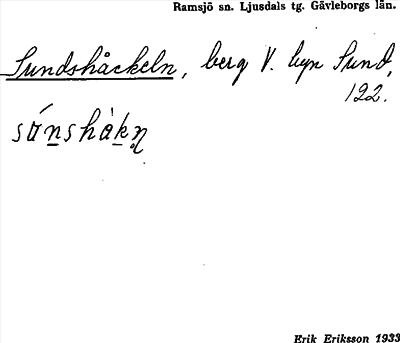 Ramsjö sn. Ljusdals tg. Gävleborgs län.
Sundshåckeln, berg V. byn Sund,
122.
Erik Eriksson 1933